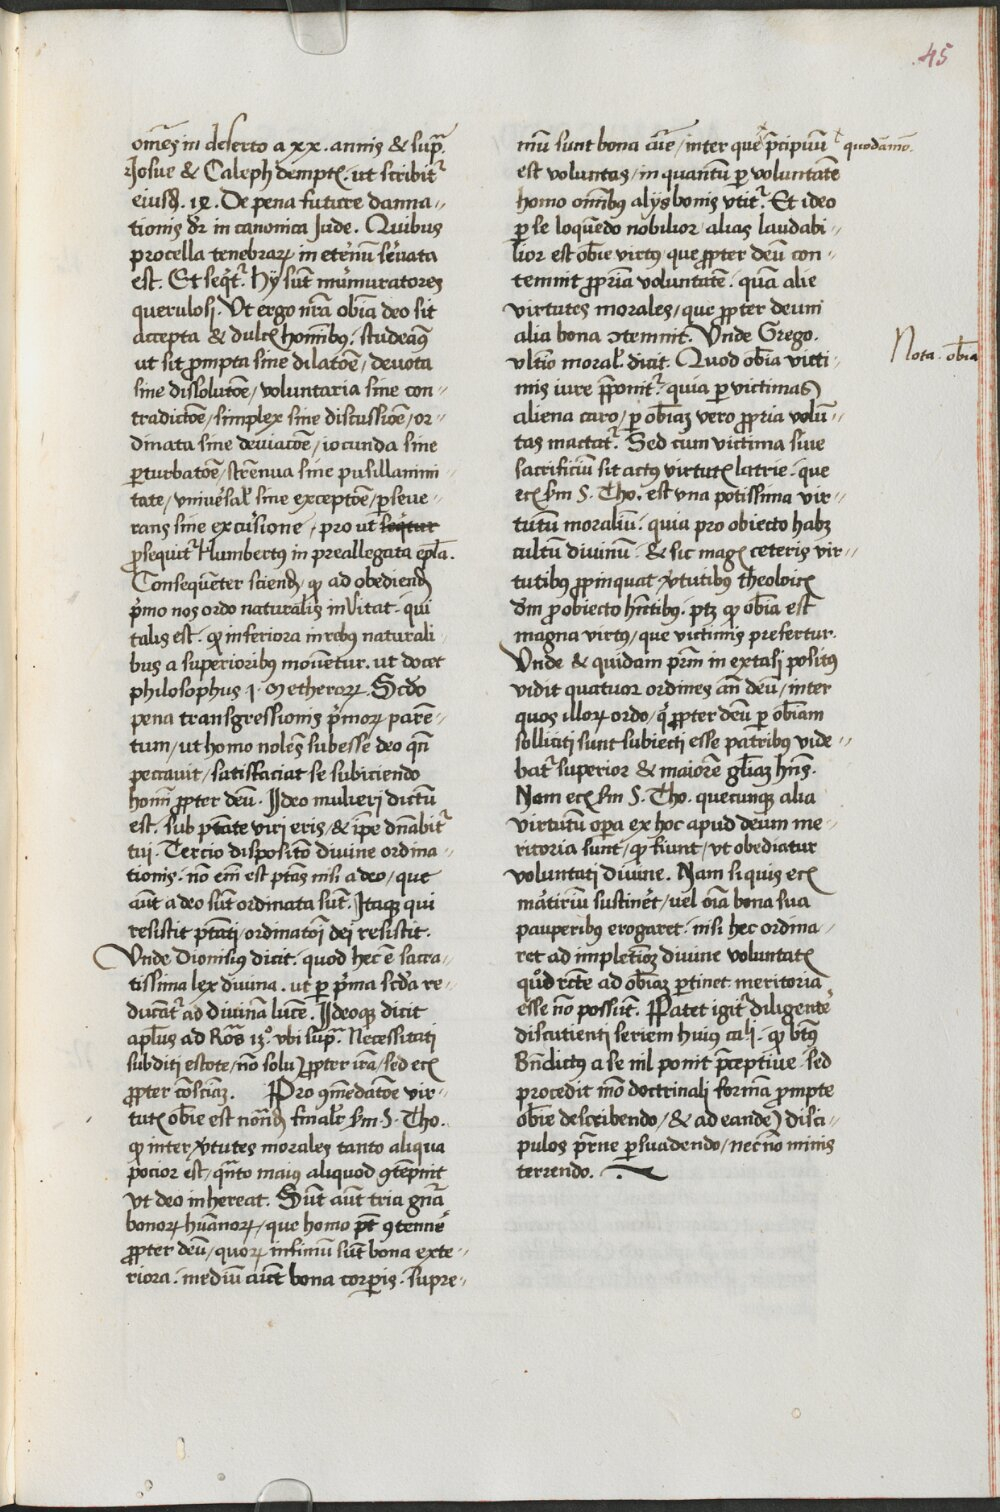 45
om̄es in deserto a xx. annis & sup̄.
Josue & Caleph dempt. ut scribit̄
eiusd. 14. De pena future danna-
tionis dr̄ in canonica Jude. Quibus
procella tenebraꝝ in eternū seruata
est. Et seqt̄. Hy sunt murmuratores
querulosi. Vt ergo nr̄a obīa deo sit
accepta & dulcis homībꝰ. studeaꝰ
ut sit prompta sine dilatōe/ deuota
sine dissolutōe/ voluntaria sine con
tradictōe/ simplex sine discussiōe/ or-
dinata sine deuiacōe/ iocunda sine
perturbatōe/ strēnua sine pusillanimi-
tate/ vniuersal sine exceptōe/ perseue-
rans sine excusione/ pro ut seqtur
prosequit̄ Humbertꝰ in preallegata epl̄a.
Consequēter sciend ꝙ ad obediend
pͥmo nos ordo naturalis inuitat. qui
talis est. ꝙ inferiora in rebꝰ naturali
bus a superioribꝰ mouētur. ut docet
philosophus 1. metheroꝝ. Scd̄o
pena transgressionis pͥmoꝝ parē-
tum/ ut homo nolēs subesse deo qn̄
peccauit/ satisfaciat se subiciendo
homī ꝓpter deū. Ideo mulieri dictū
est. sub ptāte viri eris/ & ip̄e dn̄abit̄
tui. Tercio dispositō diuine ordina-
tionis. nō em̄ est ptās nisi a deo/ que
aūt a deo sūt ordinata sūt. Itaqꝫ qui
resistit ptāti/ ordinatōi dei resistit.
Vnde Dionisiꝰ dicit. quod hec ē sacra-
tissima lex diuina. ut per pͥma scd̄a re-
ducāt̄ ad diuinā lucē. Ideoqꝫ dicit
apl̄us ad Ro. 13º. vbi sup̄. Necessitati
subditi estote/ nō solū ꝓpter irā/ sed eciā
ꝓpter cōsciāꝫ. Pro ꝯmēdatōe vir-
tutis obīe est notād finalr̄ sm̄ S. Tho.
ꝙ inter v̄tutes morales tanto aliqua
pocior est/ qn̄to maiꝰ aliquod ꝯtēpnit
vt deo inhereat. Sūt aūt tria gn̄a
bonoꝝ humanoꝝ/ que homo pt̄ ꝯtēnē
ꝓpter deū/ quoꝝ infimū sūt bona exte-
riora. mediū aūt bona corporis. supre-
mū sunt bona aīe/ inter que p̄cipuū quodāmō.
est voluntas/ in quantū per voluntatē
homo omībꝰ alijs bonis vtit̄. Et ideo
per se loquēdo nobilior alias laudabi-
lior est obīe virtꝰ que ꝓpter deū con-
temnit ꝓpriā voluntatē. quā alie
virtutes morales/ que ꝓpter deum
alia bona ꝯtemnit. Vnde Grego.
vltīo moral. dicit. Quod obīa victi-
Nota. obīa
mis iure p̄ponit̄. quia per victimas
aliena caro/ per obīaꝫ vero ꝓpria volū-
tas mactat̄. Sed cum victima siue
sacrificiū sit actꝰ virtutis latrie. que
eciā sm̄ S. Tho. est vna potissima vir-
tutū moraliū. quia pro obiecto habꝫ
cultū diuinū & sic magis ceteris vir-
tutibꝰ ꝓpinquat v̄tutibus theoloicis
dm̄ pro obiecto hn̄tibꝰ. ptꝫ ꝙ obīa est
magna virtꝰ/ que victimis prefertur.
Vnde & quidam pr̄m in extasi positꝰ
vidit quatuor ordines an̄ deū/ inter
quos illoꝝ ordo/ qͥ ꝓpter deū per obīam
solliciti sunt subiecti esse patribus vide-
bat̄ superior & maiorē gl̄iaꝫ hn̄s.
Nam eciā sm̄ S. Tho. quecunqꝫ alia
virtutū opera ex hoc apud deum me-
ritoria sunt/ ꝙ fiunt/ vt obediatur
voluntati diuine. Nam si quis eciā
martiriū sustinēt/ vel oīa bona sua
pauperibꝰ erogaret. nisi hec ordina-
ret ad impletiōꝫ diuine voluntatis
quod rcte ad obīaꝫ pertinet. meritoria
esse nō possūt. Patet igit̄ diligente
discutienti seriem huiꝰ cali. ꝙ btꝰ
Bn̄dictꝰ a se nil ponit p̄ceptiue sed
procedit mō doctrinali formā prompte
obīe describendo/ & ad eandē disci-
pulos pr̄ne persuadendo/ necnō minis
terrendo.